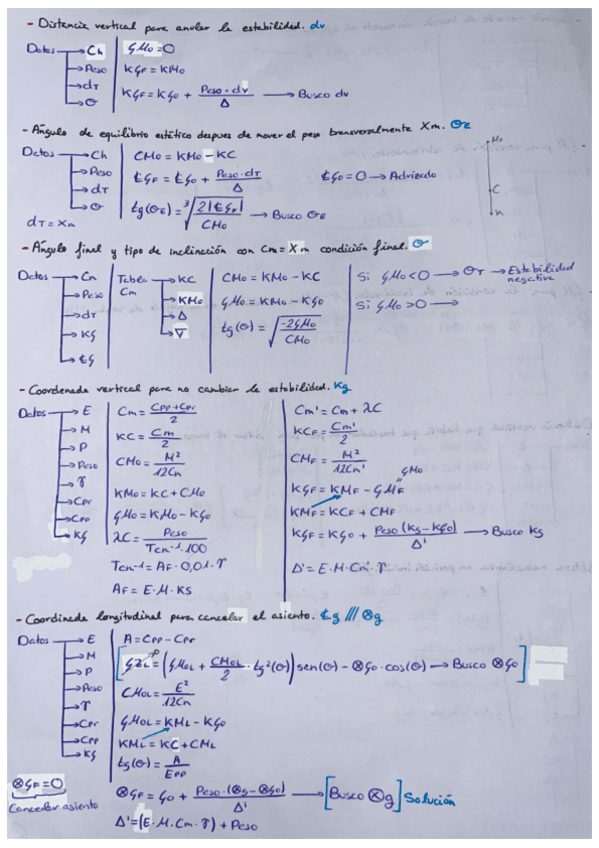 - Distancia vertical para anular la estabilidad. dv
Datos → Ch
Peso
dT
θ
GM₀=0
KGF = KM₀
KGF = KG₀ + Peso·dv / Δ → Busco dv
- Ángulo de equilibrio estático despues de mover el peso transversalmente Xm. θE
Datos → Ch
Peso
dT
θ
dT = Xm
CM₀ = KM₀ - KC
ȻGF = ȻG₀ + Peso·dT / Δ
ȻG₀=0 → Adrizado
tg(θE) = ³√(2|ȻGF| / CM₀) → Busco θE
M₀
C
K
- Ángulo final y tipo de inclinación con Cm = Xm condición final. θ
Datos → Cm
Peso
dT
KG
ȻG
Tabla Cm → KC
KM₀
Δ
∇
CM₀ = KM₀ - KC
GM₀ = KM₀ - KG₀
tg(θ) = √(-2GM₀ / CM₀)
Si GM₀<0 → θT → Estabilidad negativa
Si GM₀>0 →
- Coordenada vertical para no cambiar la estabilidad. Kg
Datos → E
M
P
Peso
γ
Cpr
Cpp
KG
Cm = Cpp+Cpr / 2
KC = Cm / 2
CM₀ = M² / 12Cm
KM₀ = KC + CM₀
GM₀ = KM₀ - KG₀
λC = Peso / Tcm⁻¹·100
Tcm⁻¹ = AF·0,01·γ
AF = E·M·KS
Cm' = Cm + λC
KCF = Cm' / 2
CMF = M² / 12Cm'
GM₀
KGF = KMF - GMF
KMF = KCF + CMF
KGF = KG₀ + Peso(Kg-KG₀) / Δ' → Busco Kg
Δ' = E·M·Cm'·γ
- Coordinada longitudinal para cancelar el asiento. Ȼg /// ⊗g
Datos → E
M
P
Peso
γ
Cpr
Cpp
KG
A = Cpp - Cpr
[GZL = (GM₀L + CM₀L / 2 · tg²(θ)) sen(θ) - ⊗G₀·cos(θ) → Busco ⊗G₀]
CM₀L = E² / 12Cm
GM₀L = KML - KG₀
KML = KC + CML
tg(θ) = A / Epp
⊗GF=0
Cancelar asiento
⊗GF = G₀ + Peso·(⊗g-⊗G₀) / Δ' → [Busco ⊗g] Solución
Δ' = (E·M·Cm·γ) + Peso